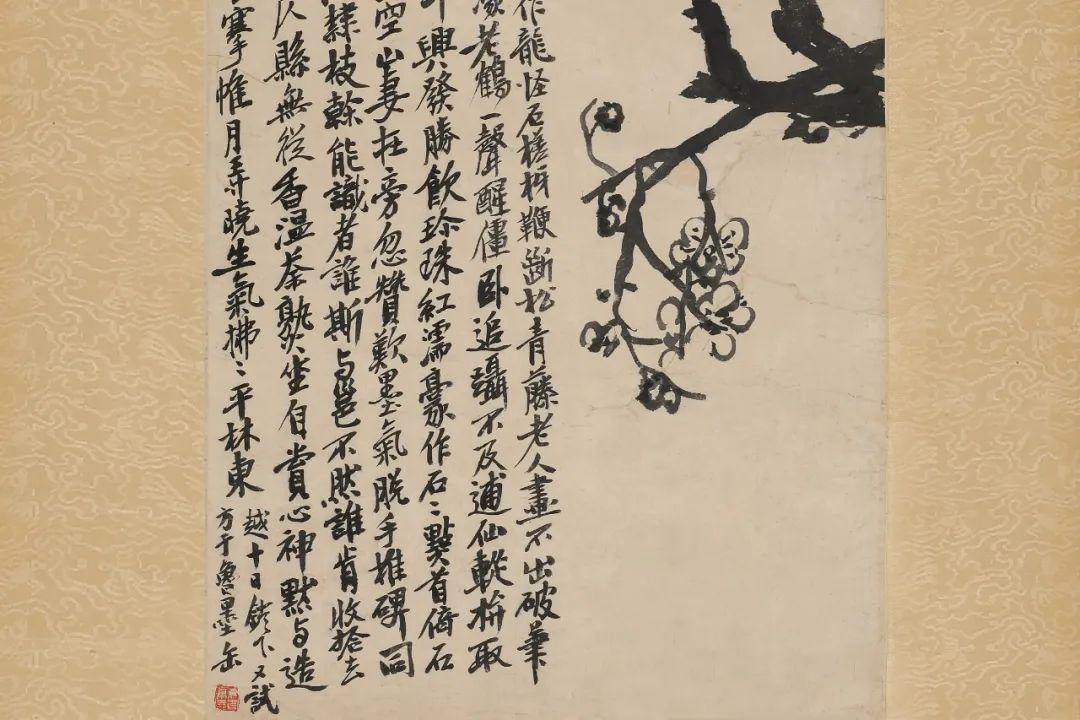 作龍怪石槎枒鞭斷松青藤老人畫不出破筆
豪老鶴一聲醒僵臥追躡不及逋仙蹤枬取
斗興發勝飲珍珠紅濡豪作石石點首倚石
空山妻在旁忽贊歎墨氣脫手椎碑同
隸枝榦能識者誰斯與邕不然誰肯收拾去
人縣無從香溫茶熟坐自賞心神默與造
搴帷月弄曉生氣拂拂平林東
越十日鐙下又試
方于魯墨缶